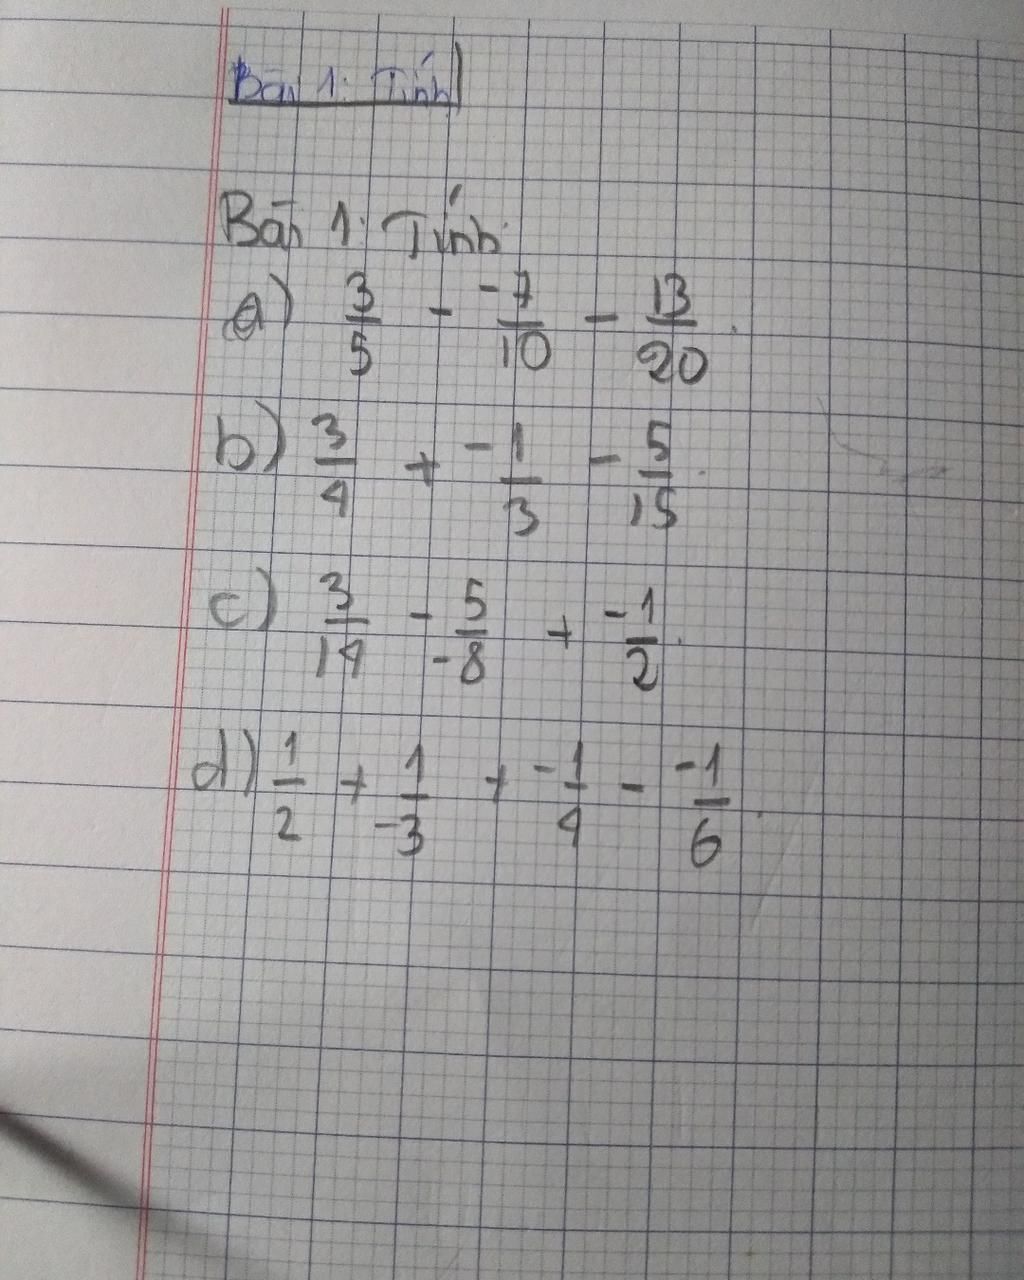 Bài 1: Tính
Bài 1: Tính
a) 3/5 - -7/10 - 13/20.
b) 3/4 + -1/3 - 5/15.
c) 3/14 - 5/-8 + -1/2.
d) 1/2 + 1/-3 + -1/4 - -1/6.